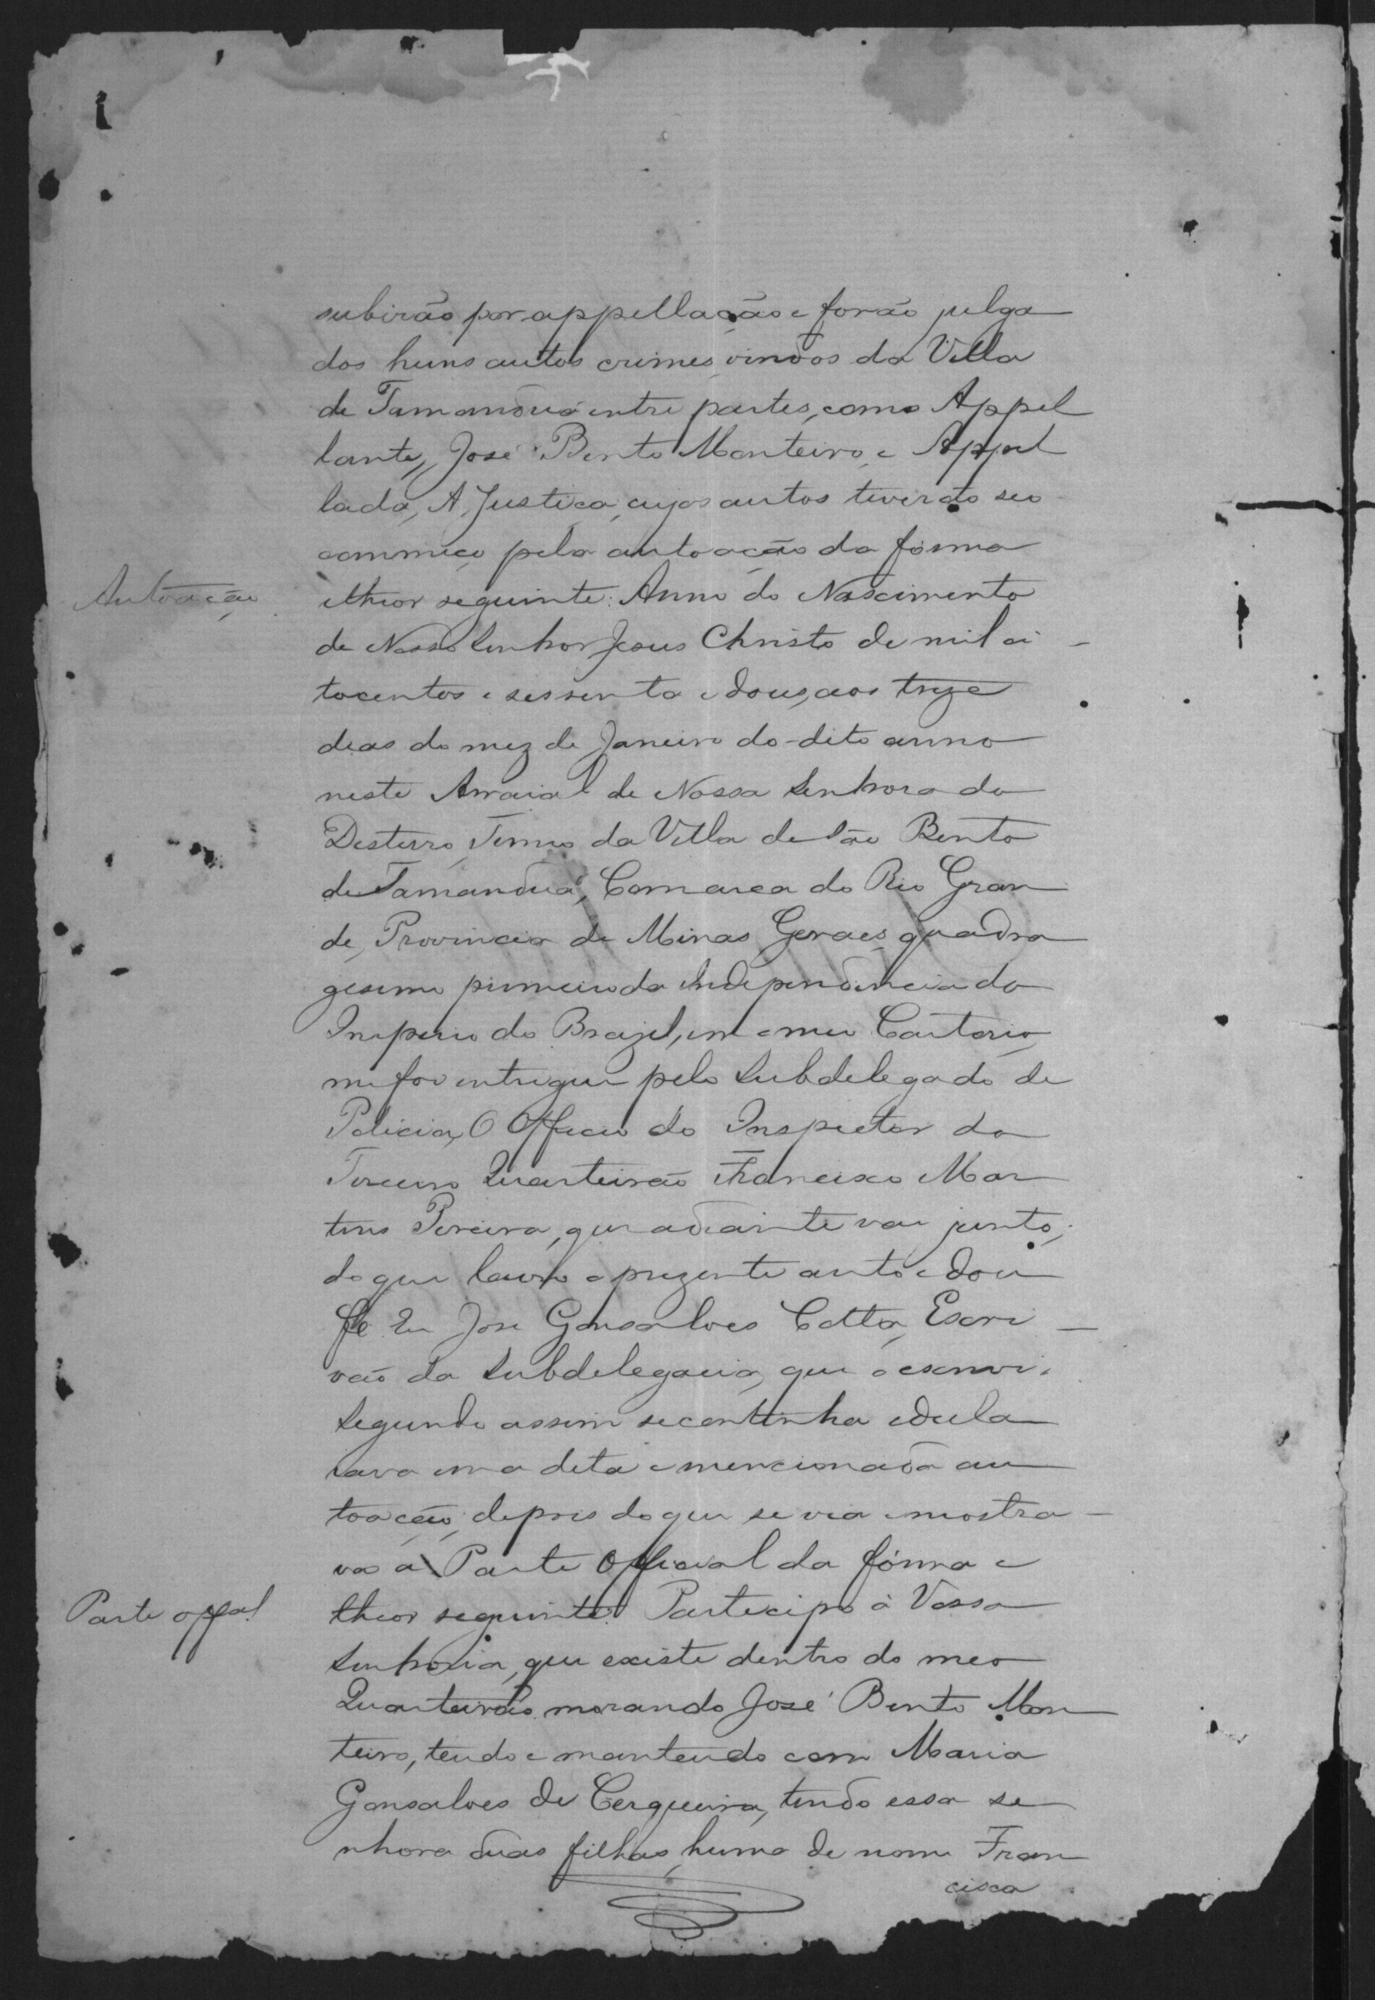 subirão por appellação e forão julga
dos huns autos crimes, vindos da Villa
de Tamanduá entre partes, como Appel
lante, José Bento Monteiro, e Appel
lada, A Justiça, cujos autos tiverão seo
commêço pela autoação da fórma
Autoação
e theor seguinte: Anno do Nascimento
de Nosso Senhor Jesus Christo de mil oi
tocentos e sessenta e dous, aos treze
dias do mez de Janeiro do dito anno
neste Arraial de Nossa Senhora do
Desterro, Termo da Villa de São Bento
de Tamanduá, Comarca do Rio Gran
de, Provincia de Minas Geraes, quadra
gesimo primeiro da Independencia do
Imperio do Brazil, em o meu Cartorio,
me foi entregue pelo Subdelegado de
Policia, O Officio do Inspector do
Terceiro Quarteirão Francisco Mar
tins Pereira, que adiante vai junto,
do que lavro o prezente auto e dou
fé Eu José Gonsalves Cotta, Escri
vão da Subdelegacia, que o escrevi.
Segundo assim se continha e decla
rava em a dita e mencionada au
toação, depois do que se via e mostra
va a Parte Official da fórma e
Parte offal.
theor seguinte: Partecipo á Vossa
Senhoria, que existe dentro do meo
Quarteirão, morando José Bento Mon
teiro, tendo e mantendo com Maria
Gonsalves de Cerqueira, tendo essa se
nhora duas filhas, huma de nome Fran
cisca